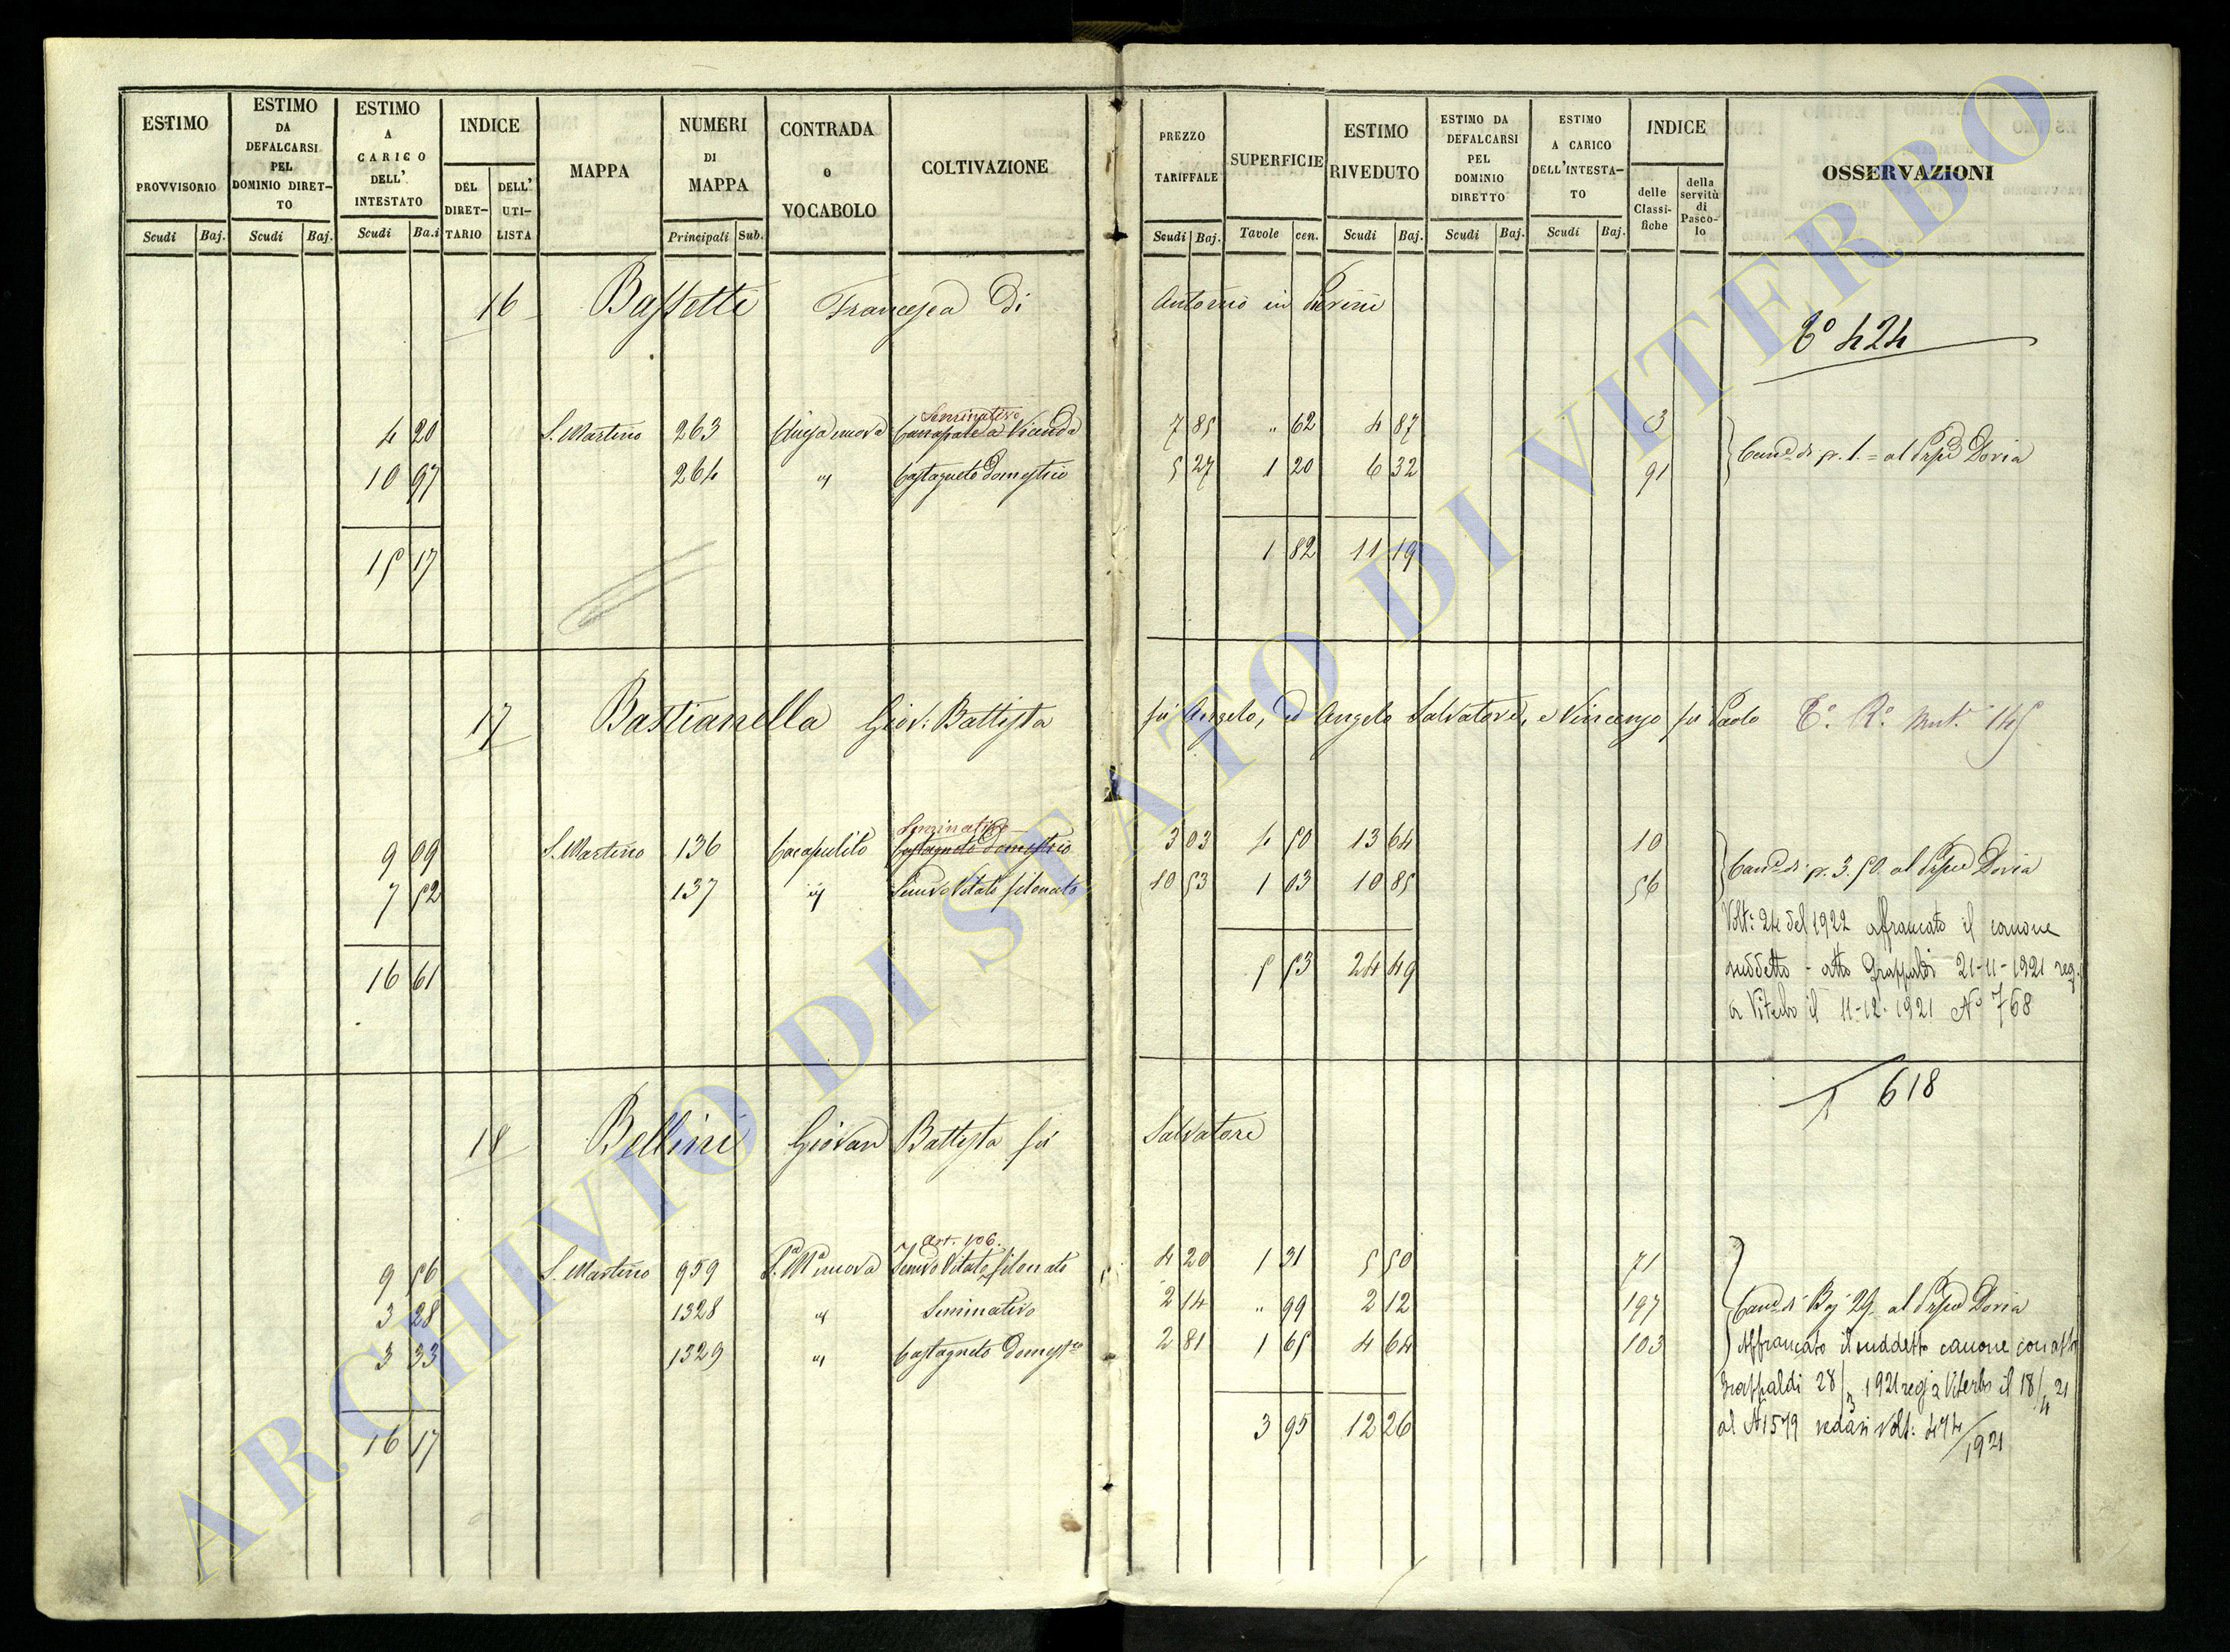 ESTIMO PROVVISORIO
ESTIMO DA DEFALCARSI PEL DOMINIO DIRET-TO
ESTIMO A CARICO DELL' INTESTATO
INDICE
DEL DIRET-TARIO
DELL' UTI-LISTA
MAPPA
NUMERI DI MAPPA
CONTRADA o VOCABOLO
COLTIVAZIONE
PREZZO TARIFFALE
SUPERFICIE
ESTIMO RIVEDUTO
ESTIMO DA DEFALCARSI PEL DOMINIO DIRETTO
ESTIMO A CARICO DELL'INTESTA-TO
INDICE
delle Classi-fiche
della servitù di Pasco-lo
OSSERVAZIONI
Scudi Baj. Scudi Baj. Scudi Ba.i Principali Sub. Scudi Baj. Tavole cen. Scudi Baj. Scudi Baj. Scudi Baj.
16 Bassetti Francesca di Antonio in
T° 424
Seminativo
4 20 S. Martino 263 Chiesa nuova Canapale a Vicenda 7 85 " 62 4 87 3
10 97 264 " Castagneto Domestico 5 27 1 20 6 32 91
Can.e di p. 1. = al Prpe Doria
15 17 1 82 11 19
17 Bastianella Giov: Battista fu Angelo, ed Angelo Salvatore, e Vincenzo fu Paolo T.° R.° Mut. 145
Seminativo
9 09 S. Martino 136 Cacapulito Castagneto Domestico 3 03 4 50 13 64 10
7 52 137 " Semvo Vitato filonato 10 53 1 03 10 85 56
Can.e di p. 3.50 al Prpe Doria
Volt: 24 del 1922 affrancato il canone
suddetto - atto Grappaldi 21-11-1921 reg.
a Viterbo il 11-12-1921 N° 768
16 61 5 53 24 49
T 618
18 Bellini Giovan Battista fu Salvatore
Art. 106.
9 56 S. Martino 959 S.a M.a nuova Semvo Vitato filonato 4 20 1 31 5 50 71
3 28 1328 " Seminativo 2 14 " 99 2 12 197
3 33 1329 " Castagneto Domest.co 2 81 1 65 4 64 103
Can.e di Baj 29 al Prpe Doria
Affrancato il suddetto canone con atto
Grappaldi 28/3 1921 reg a Viterbo il 18/4 21
al N 1579 vedasi Volt: 474/1921
16 17 3 95 12 26
ARCHIVIO DI STATO DI VITERBO